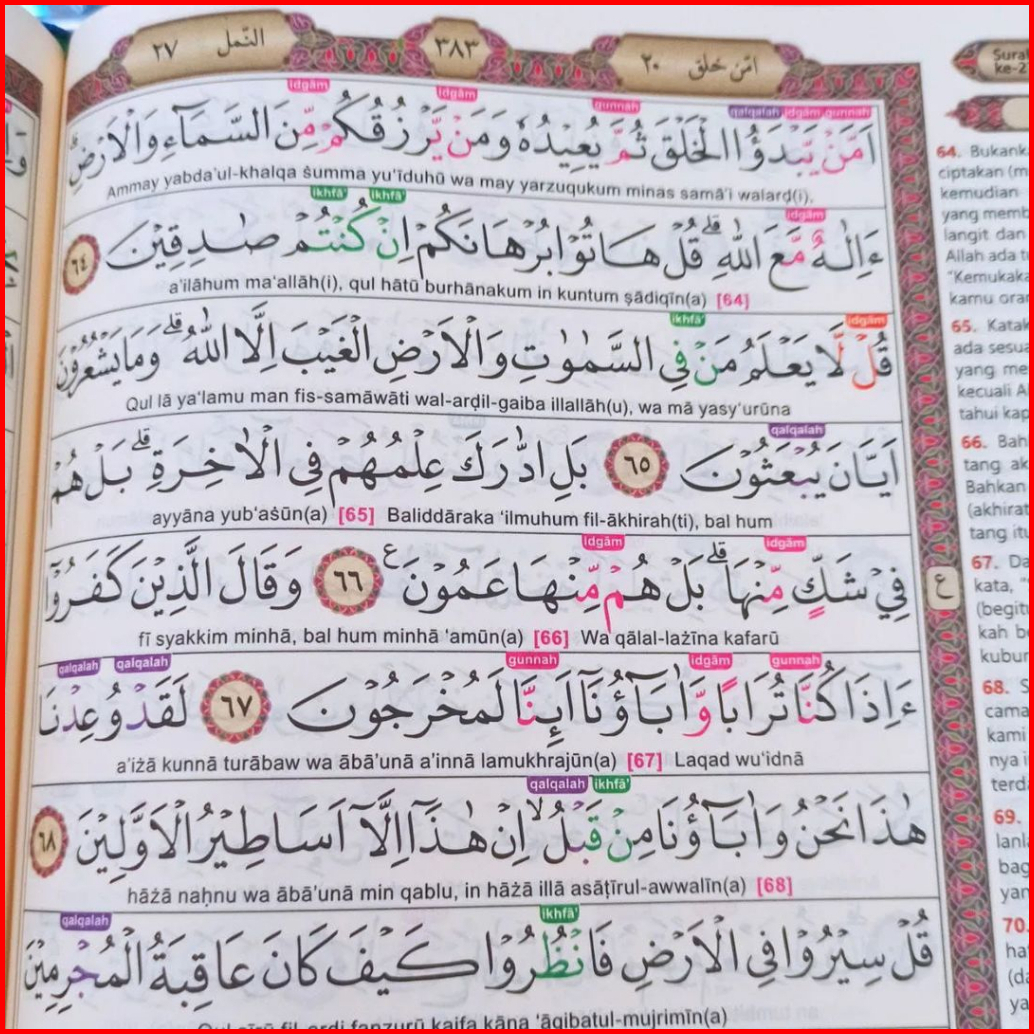 النّمل ٢٧
٣٨٣
امّن خلق ٢٠
Surat
ke-2
idgām idgām gunnah qalqalah idgām gunnah
اَمَّنْ يَّبْدَؤُا الْخَلْقَ ثُمَّ يُعِيْدُهٗ وَمَنْ يَّرْزُقُكُمْ مِّنَ السَّمَاۤءِ وَالْاَرْضِۗ
Ammay yabda'ul-khalqa ṡumma yu‘īduhū wa may yarzuqukum minas samā'i walarḍ(i),
ikhfā' ikhfā' idgām
ءَاِلٰهٌ مَّعَ اللّٰهِ ۗقُلْ هَاتُوْا بُرْهَانَكُمْ اِنْ كُنْتُمْ صٰدِقِيْنَ ٦٤
a'ilāhum ma‘allāh(i), qul hātū burhānakum in kuntum ṣādiqīn(a) [64]
ikhfā' idgām
قُلْ لَّا يَعْلَمُ مَنْ فِى السَّمٰوٰتِ وَالْاَرْضِ الْغَيْبَ اِلَّا اللّٰهُ ۗوَمَا يَشْعُرُوْنَ
Qul lā ya‘lamu man fis-samāwāti wal-arḍil-gaiba illallāh(u), wa mā yasy‘urūna
qalqalah
اَيَّانَ يُبْعَثُوْنَ ٦٥ بَلِ ادّٰرَكَ عِلْمُهُمْ فِى الْاٰخِرَةِۗ بَلْ هُمْ
ayyāna yub‘aṡūn(a) [65] Baliddāraka ‘ilmuhum fil-ākhirah(ti), bal hum
idgām idgām
فِيْ شَكٍّ مِّنْهَاۗ بَلْ هُمْ مِّنْهَا عَمُوْنَ ࣖ ٦٦ وَقَالَ الَّذِيْنَ كَفَرُوْٓا
ع
fī syakkim minhā, bal hum minhā ‘amūn(a) [66] Wa qālal-lażīna kafarū
qalqalah qalqalah gunnah idgām gunnah
ءَاِذَا كُنَّا تُرَابًا وَّاٰبَاۤؤُنَآ اَىِٕنَّا لَمُخْرَجُوْنَ ٦٧ لَقَدْ وُعِدْنَا
a'iżā kunnā turābaw wa ābā'unā a'innā lamukhrajūn(a) [67] Laqad wu‘idnā
qalqalah ikhfā'
هٰذَا نَحْنُ وَاٰبَاۤؤُنَا مِنْ قَبْلُ ۙاِنْ هٰذَآ اِلَّآ اَسَاطِيْرُ الْاَوَّلِيْنَ ٦٨
hāżā naḥnu wa ābā'unā min qablu, in hāżā illā asāṭīrul-awwalīn(a) [68]
qalqalah ikhfā'
قُلْ سِيْرُوْا فِى الْاَرْضِ فَانْظُرُوْا كَيْفَ كَانَ عَاقِبَةُ الْمُجْرِمِيْنَ
Qul sīrū fil-arḍi fanẓurū kaifa kāna ‘āqibatul-mujrimīn(a)
64. Bukank
ciptakan (m
kemudian
yang memb
langit dan
Allah ada t
"Kemukaka
kamu oran
65. Katak
ada sesua
yang me
kecuali A
tahui kap
66. Bah
tang ak
Bahkan
(akhirat
tang itu
67. Da
kata, "
(begitu
kah b
kubur
68. S
cama
kami
nya i
terda
69.
lanl
bag
yan
70.
ha
(da
ya